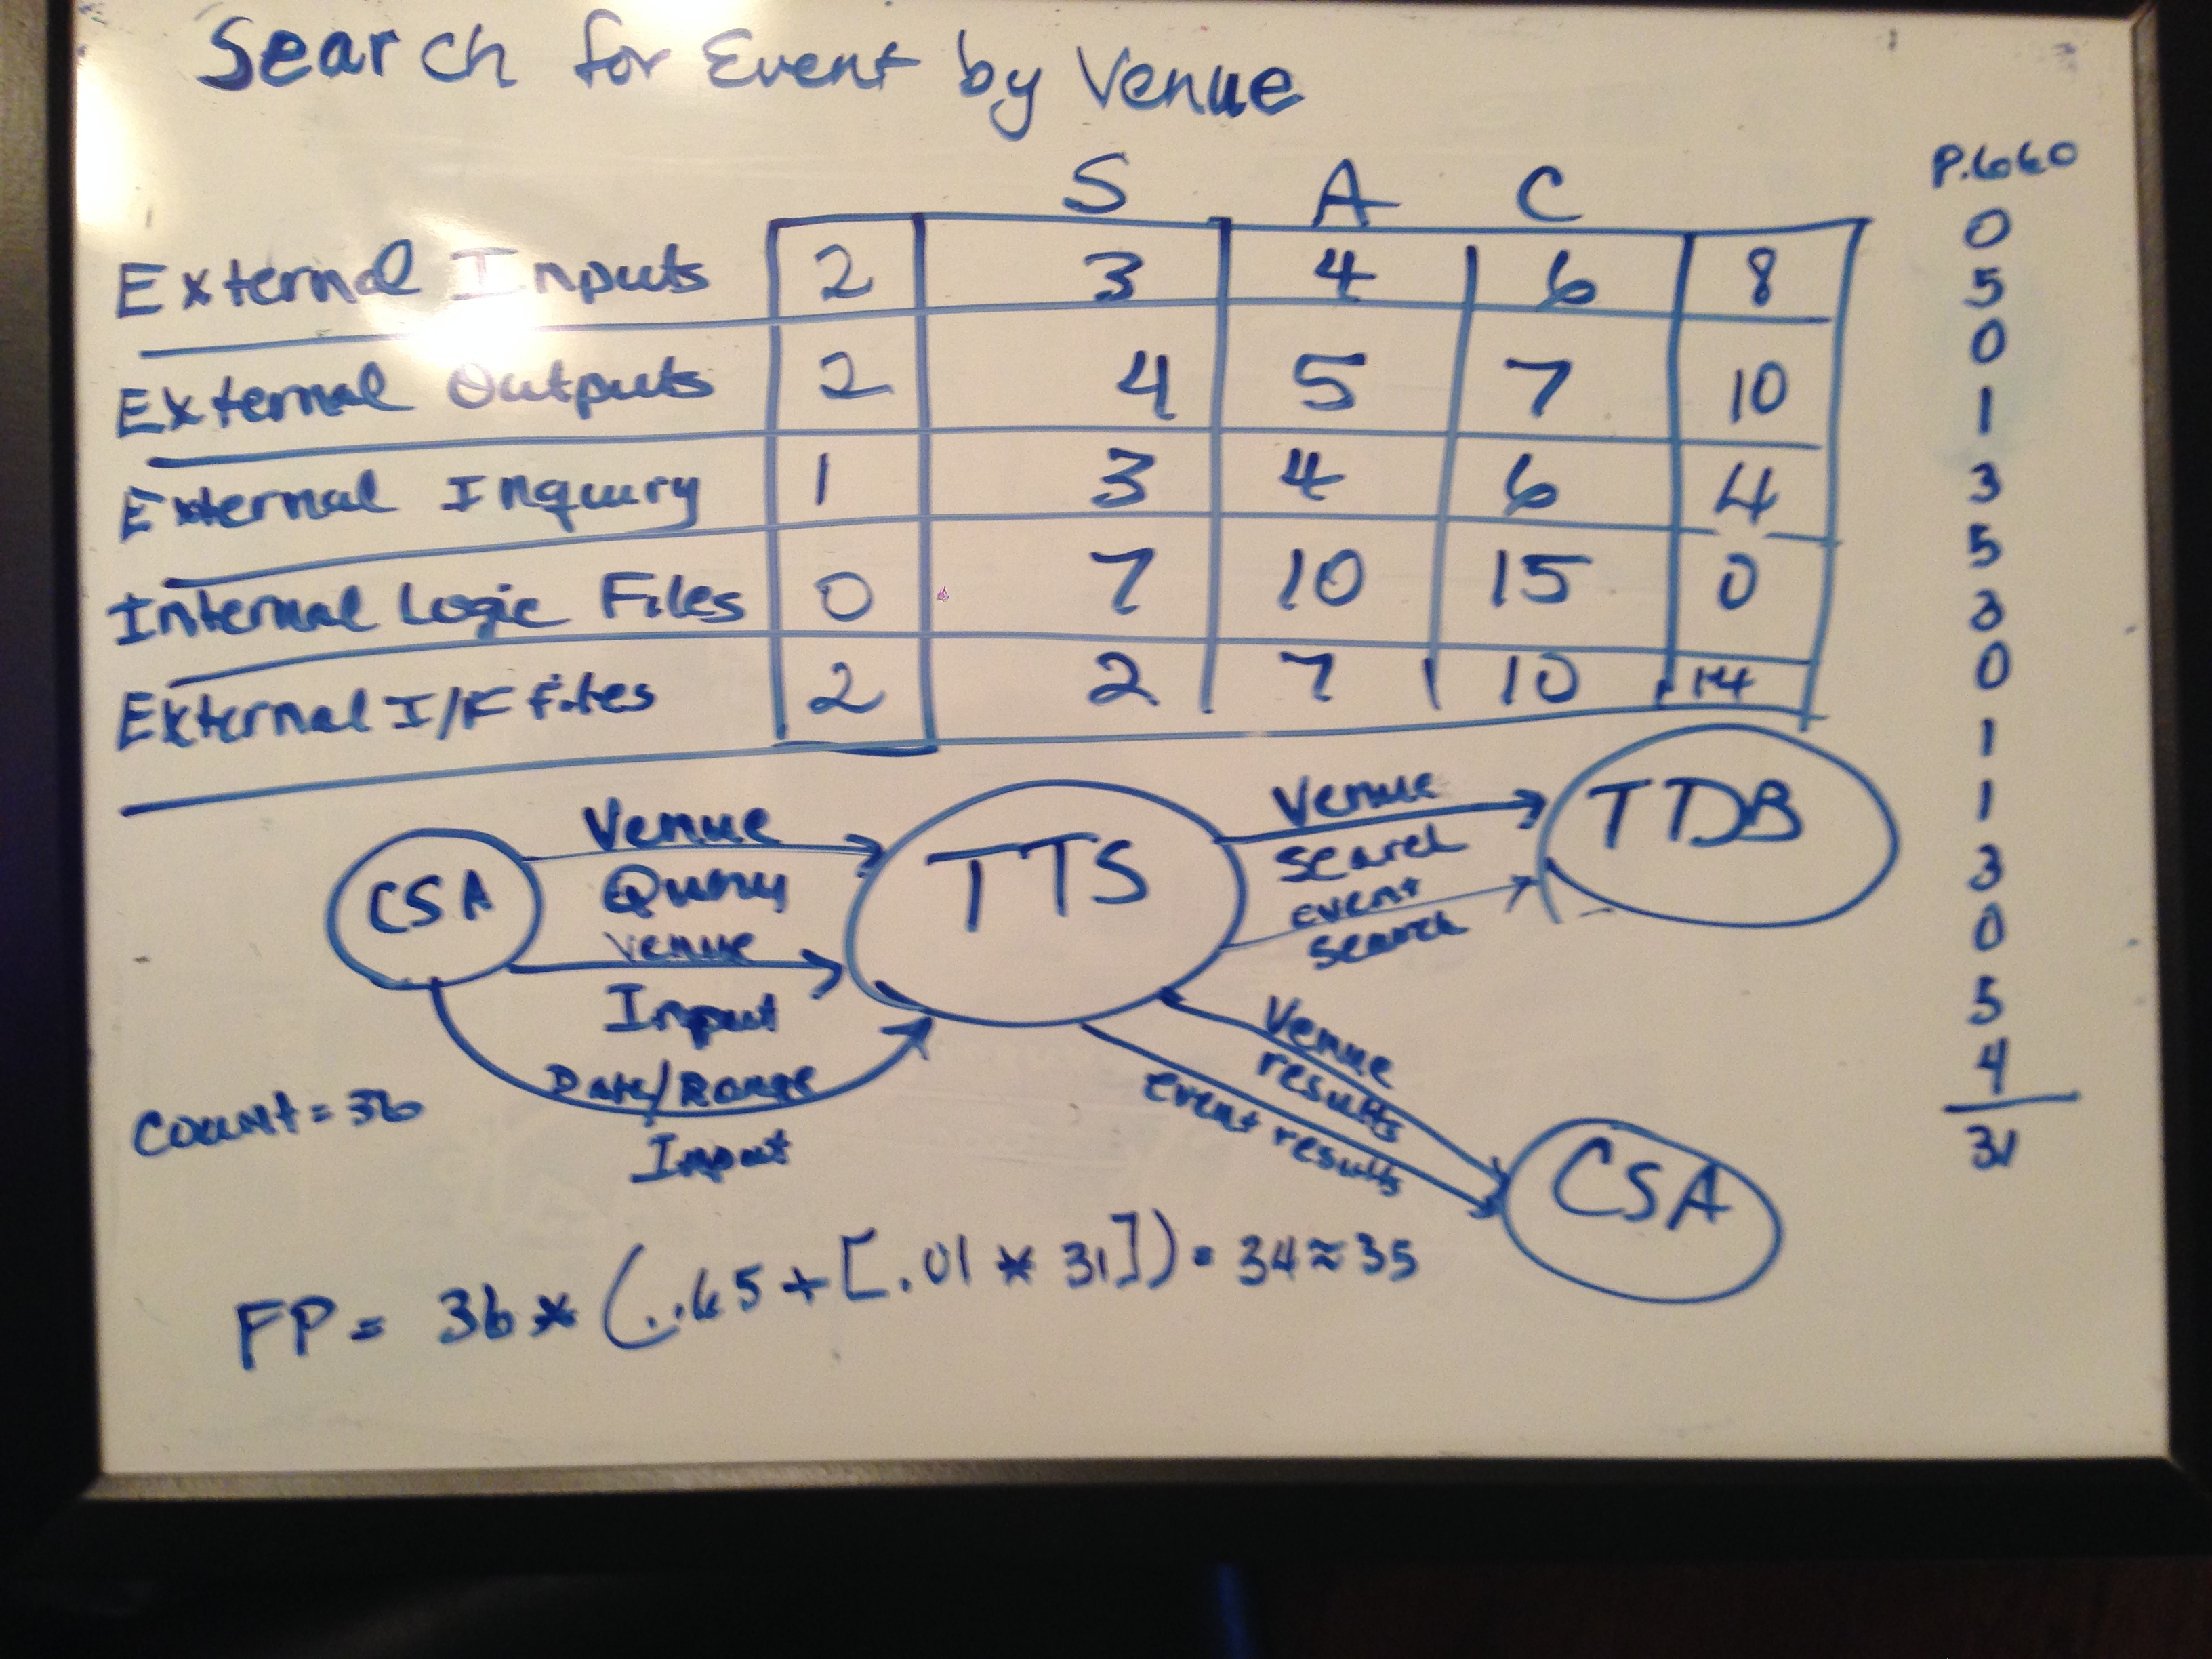 Search for Event by Venue
P.660
S A C
External Inputs 2 3 4 6 8
External Outputs 2 4 5 7 10
External Inquiry 1 3 4 6 4
Internal Logic Files 0 7 10 15 0
External I/F files 2 2 7 10 14
0
5
0
1
3
5
3
0
1
1
3
0
5
4
31
CSA
Venue
Query
Venue
Input
Date/Range
Input
TTS
Venue
Search
event
search
TDB
Venue
results
event results
CSA
Count = 36
FP = 36 * (.65 + [.01 * 31]) = 34 ≈ 35